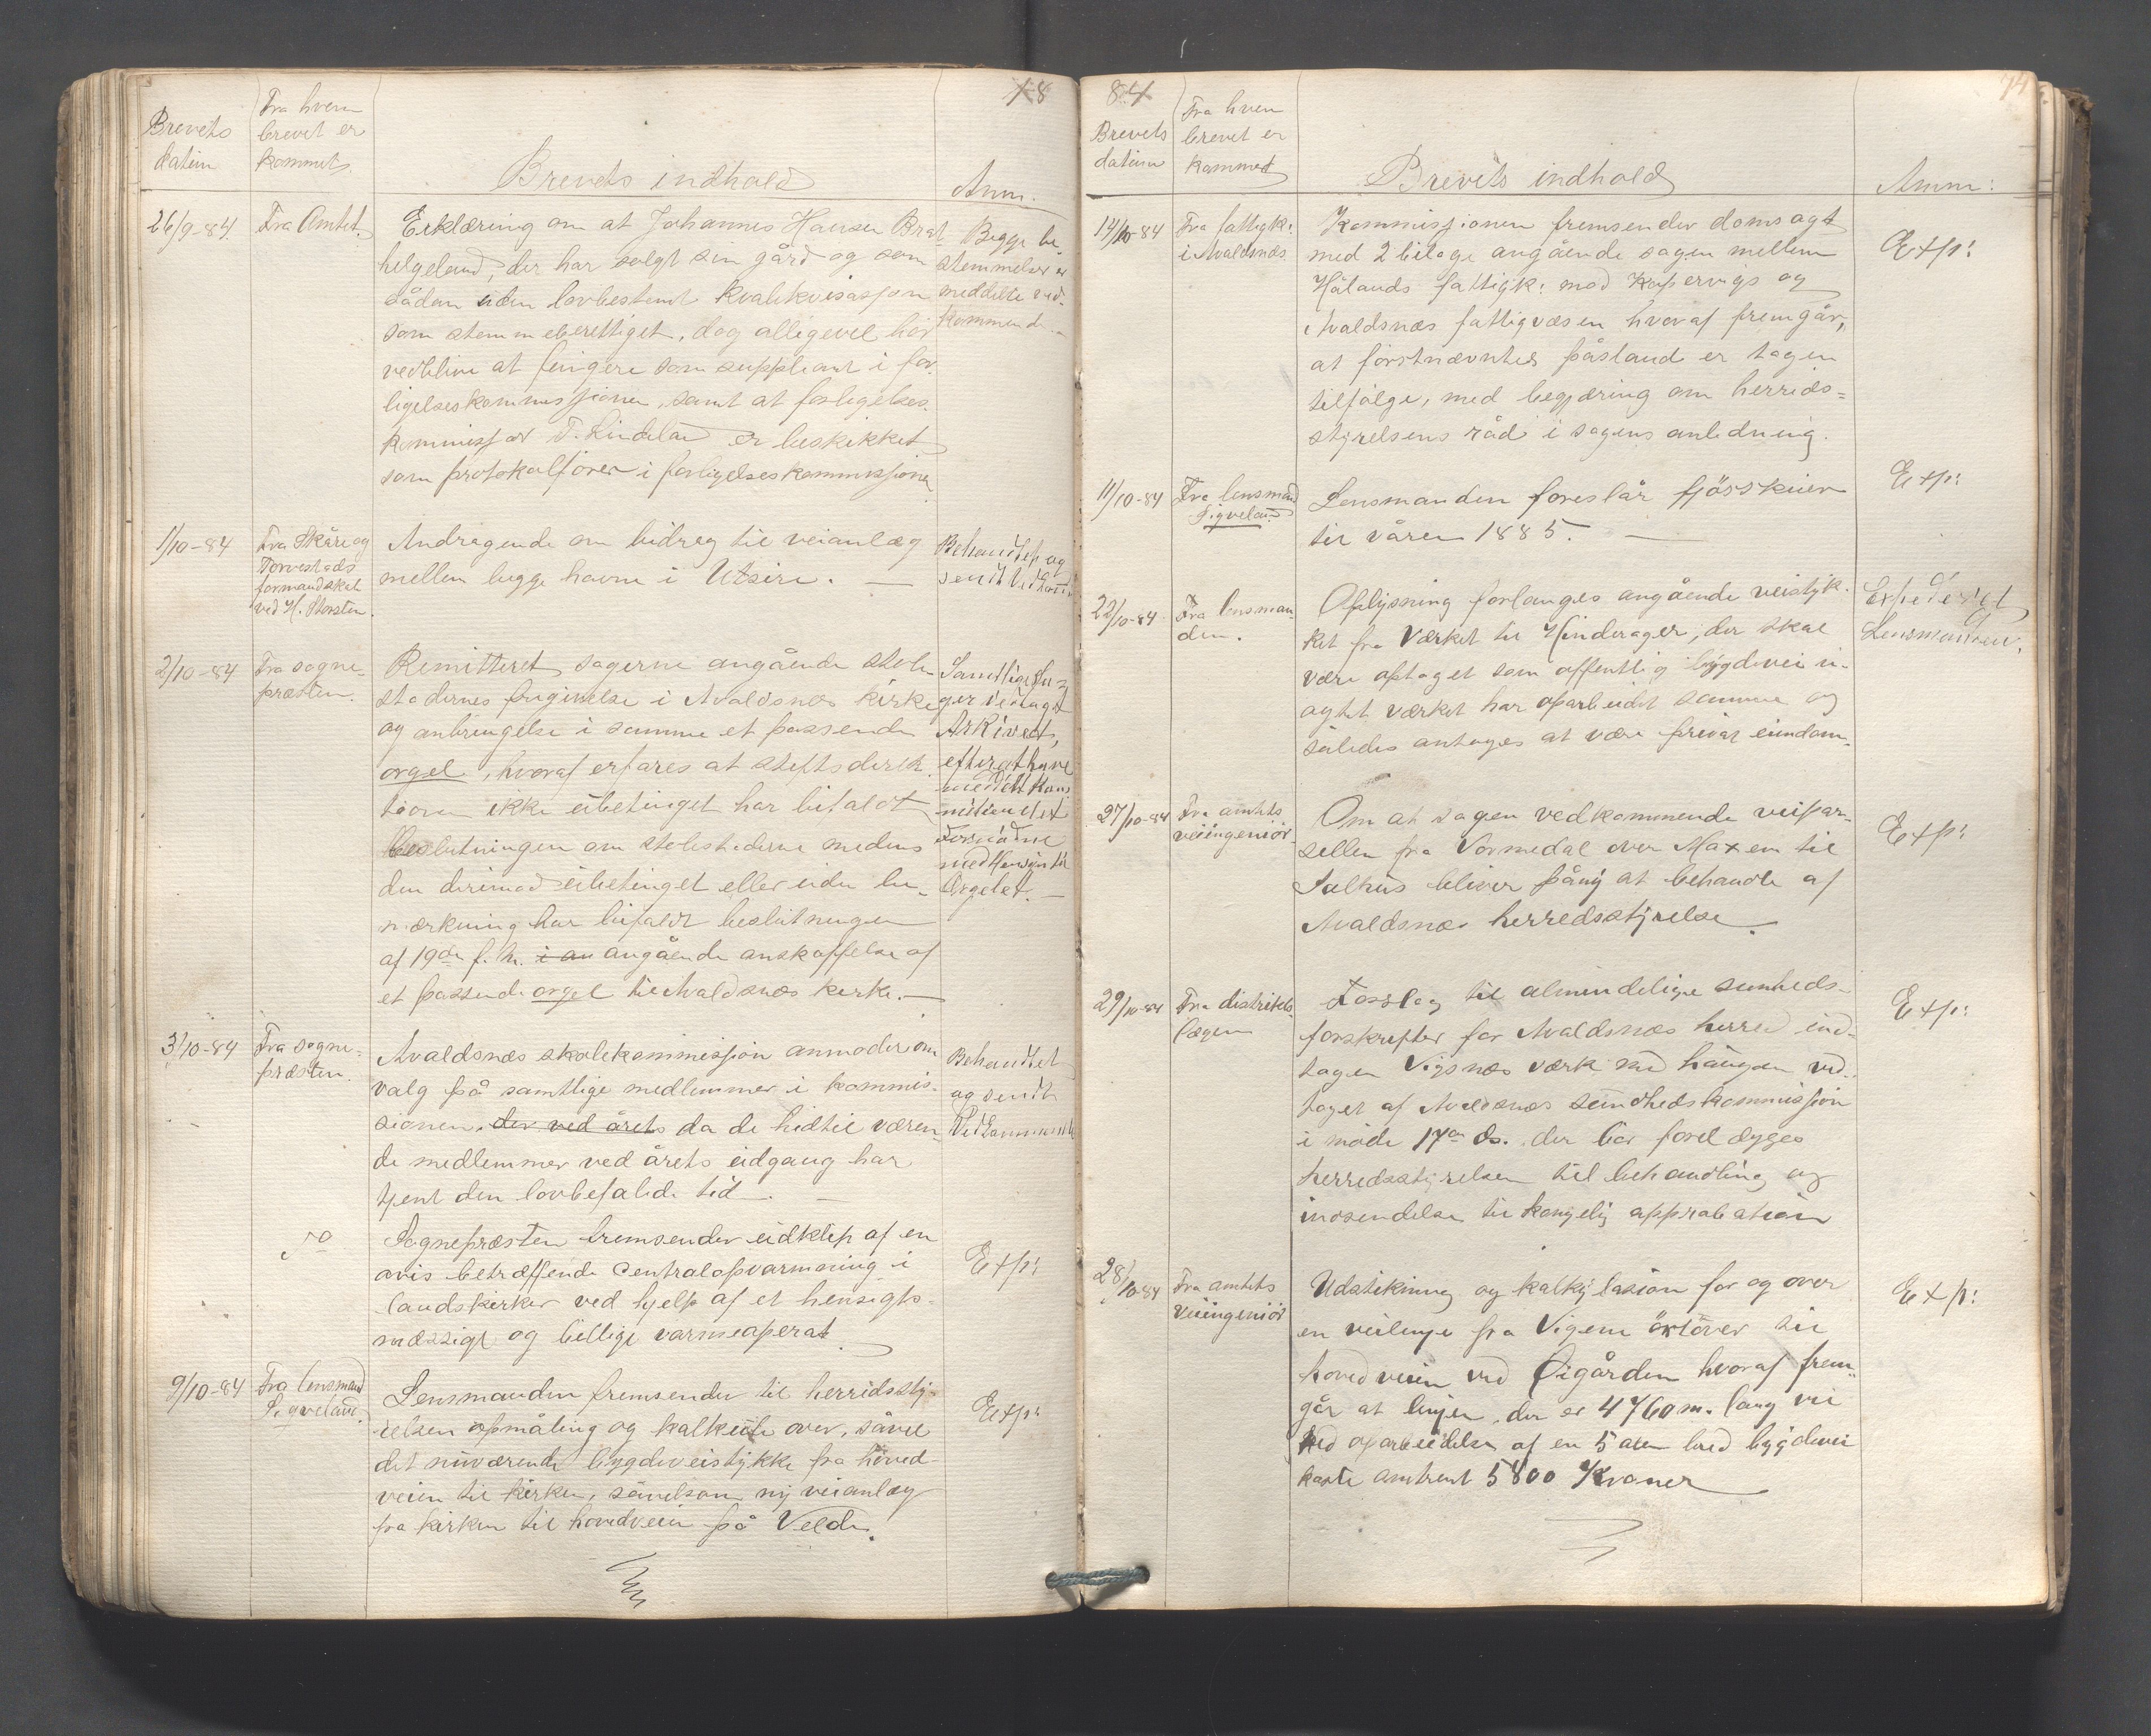 18
Brevets
datum
Fra hvem
brevet er
kommet.
Brevets indhold
Anm.
26/9-84.
Fra Amtet.
Erklæring om at Johannes Hansen Brat-
helgeland, der har solgt sin gård og som
sådan uden lovbestemt kvalikvisasjon
som stemmeberettiget, dog alligevel bör
vedblive at fungere som suppleant i for-
ligelseskommissjonen, samt at forligelses-
kommissær T. Lindeland er beskikket
som protokolfører i forligelseskommissjonen.
Begge be
stemmelser er
meddelte ved-
kommende.
1/10-84
Fra Skåre og
Torvestads
formandskab
ved H. Thorsten.
Andragende om bidrag til veianlæg
mellem begge havne i Utsire. —
Behandlet og
sendt
2/10-84
Fra sogne-
præsten.
Remitteret sagerne angående stole
stadernes bygivelse i Avaldsnes kirke
og anbringelse i samme et passende
orgel, hvoraf erfares at stiftsdirek-
tionen ikke übetinget har bifaldt
beslutningen om stolestederne medens
den derimod übetinget eller uden be-
mærkning har bifaldt beslutningen
af 19de f. M. i an angående anskaffelse af
et passende orgel til Avaldsnæs kirke. —
Samtlige
ger vedtaget
Arkivect,
efter at have
meddelt Kom
mitteen det
Fornødne
med Hensyn til
Orgelet. —
3/10-84
Fra sogne-
præsten.
Avaldsnæs skolekommissjon anmoder om
valg på samtlige medlemmer i kommis-
sionen, der ved årets da de hidtil væren-
de medlemmer ved årets udgang har
tjent den lovbefalede tid. —
Behandlet
og sendt
Vedkommende
do
Sognepræsten fremsender udklip af en
avis betræffende Centralopvarmning i
landskirker ved hjelp af et hensigts-
mæssigt og billige varmeaperat.
Exp:
9/10-84
Fra lensmand
Sigveland.
Lensmanden fremsender til herridssty-
relsen opmåling og kalküle over, såvel
det nuværende bygdeveistykke fra hoved-
veien til kirken, såvelsom ny veianlæg
fra kirken til hovedveien på Velde.
Exp:
84
74
Brevets
datum
Fra hvem
brevet er
kommet
Brevets indhold
Anm:
14/10-84
Fra fattigk:
i Avaldsnæs
Kommissjonen fremsender domsagt
med 2 bilage angående sagen mellem
Hålands fattigk: mod Kopervigs og
Avaldsnæs fattigvæsen hvoraf fremgår,
at förstnævntes påstand er tagen
tilfølge, med begjæring om herrids=
styrelsens råd i sagens anledning.
Exp:
11/10-84
Fra lensmand
Sigveland
Lensmanden foreslår fjösskuer
til våren 1885. —
Exp:
22/10-84
Fra lensman-
den.
Oplysning forlanges angående veistyk-
ket fra Værket til Hinderager, der skal
være optaget som offentlig bygdevei u-
agtet værket har oparbeidet samme og
således antages at være privat eiendom.
Expederet
Lensmanden.
27/10-84
Fra amtets
veiingeniör
Om at sagen vedkommende veipar-
sellen fra Vormedal over Maxen til
Salhus bliver påny at behandle af
Avaldsnæs herredsstyrelse.
Exp:
29/10-84
Fra distrikts-
lægen
Forslag til almindelige sunheds-
forskrifter for Avaldsnæs herred ind-
tagen Vigsnæs værk med haugen ved-
taget af Avaldsnæs sundhedskommissjon
i møde 17de ds. der bör forelægges
herredsstyrelsen til behandling og
indsendelse til kongelig approbation
Exp:
28/10-84
Fra amtets
veiingeniör
Udstikning og kalkylasion for og over
en veilinje fra Vigene östover til
hovedveien ved Øigården hvoraf frem-
går at linjen, der er 4760 m. lang vil
ved oparbeidelse af en 5 alen bred bygdevei
koste omtrent 5800 Kroner
Exp: